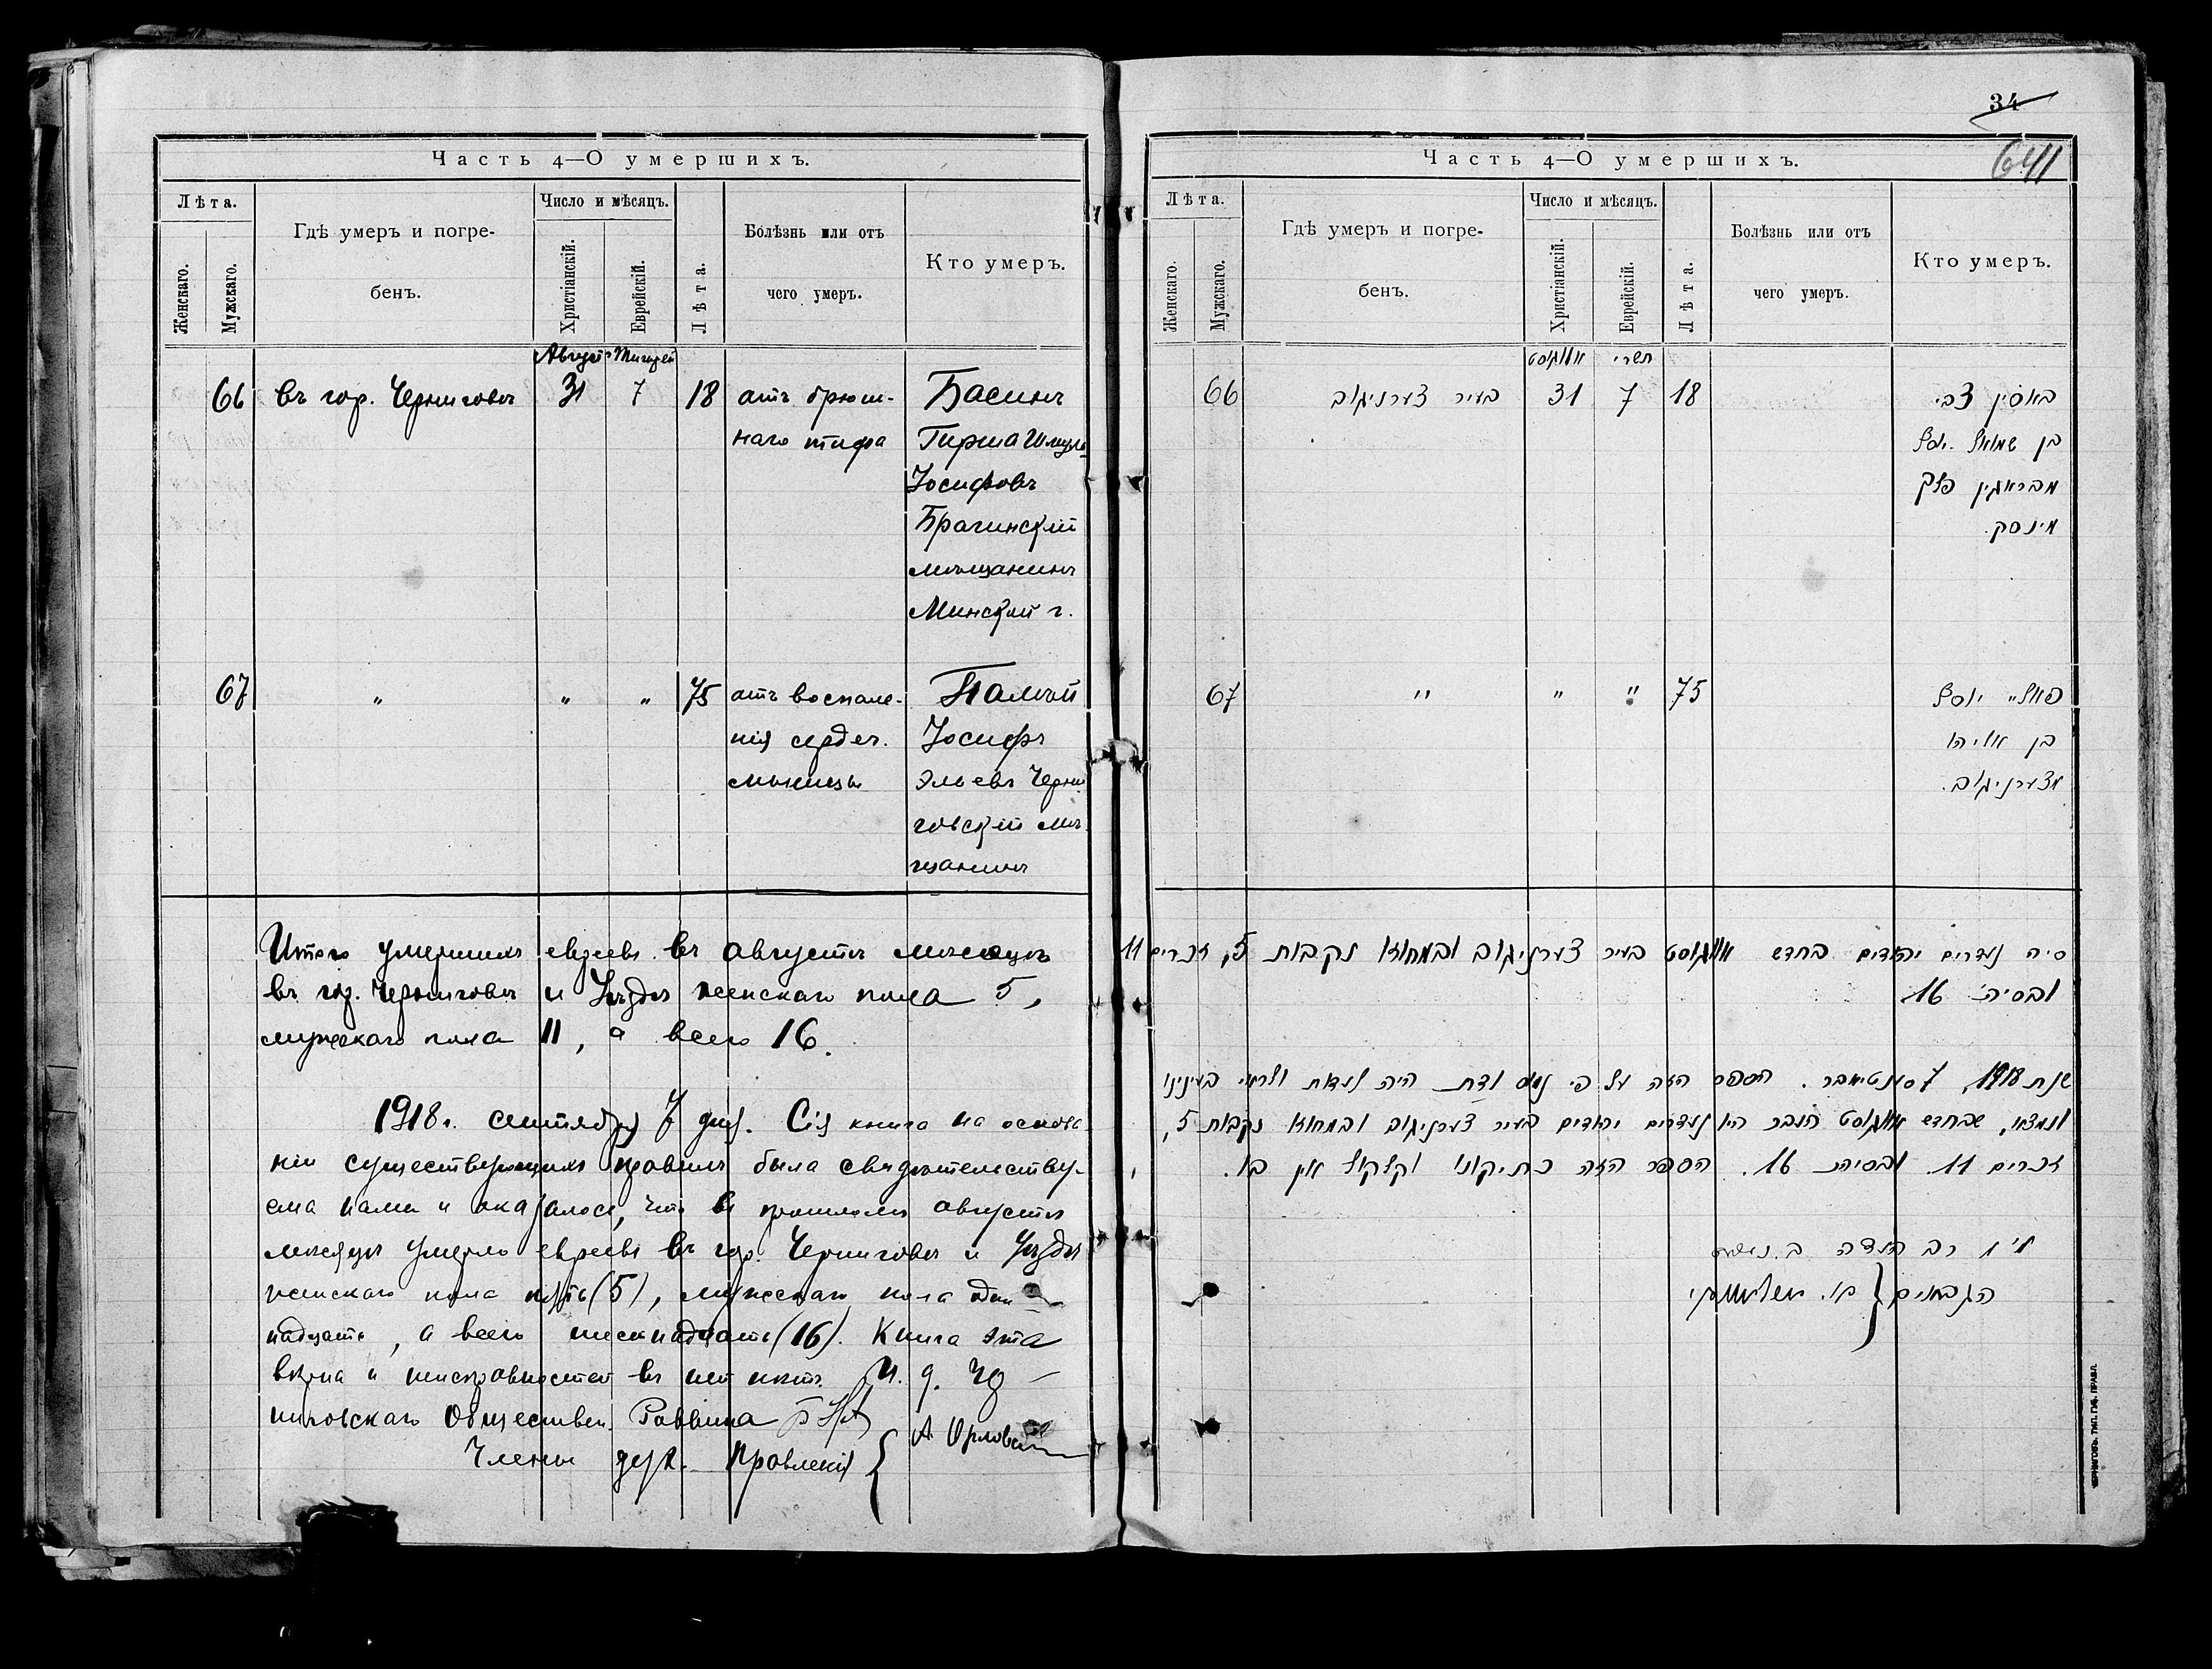 34
641
Часть 4—О умершихъ.
Лѣта.
Женскаго.
Мужскаго.
Гдѣ умеръ и погре-
бенъ.
Число и мѣсяцъ.
Христіанскій.
Еврейскій.
Лѣта.
Болѣзнь или отъ
чего умеръ.
Кто умеръ.
Августъ Тишрей
66 въ гор. Черниговѣ 31 7 18 отъ брюш- Басинъ
наго тифа Гирша Шмуль
Іосифовъ
Брагинскій
мѣщанинъ
Минской г.
67 " " " 75 отъ воспале- Палѣй
нія сердеч. Іосифъ
мышцы Эльевъ Черни
говскій мѣ-
щанинъ
Итого умершихъ евреевъ въ августѣ мѣсяцѣ
въ гор. Черниговѣ и Уѣздѣ женскаго пола 5,
мужескаго пола 11, а всего 16.
1918 г. сентября 7 дня. Сія книга на основа
ніи существующихъ правилъ была свидѣтельствуе-
ма нами и оказалось, что въ прошломъ августѣ
мѣсяцѣ умерло евреевъ въ гор. Черниговѣ и Уѣздѣ
женскаго пола пять (5), мужескаго пола один
надцать, а всего шестнадцать (16). Книга эта
вѣрна и неисправностей въ ней нѣтъ. И. д. Чер
ниговскаго Обществен. Раввина
Члены дух. Правленія { А. Орловскій
Часть 4—О умершихъ.
Лѣта.
Женскаго.
Мужскаго.
Гдѣ умеръ и погре-
бенъ.
Число и мѣсяцъ.
Христіанскій.
Еврейскій.
Лѣта.
Болѣзнь или отъ
чего умеръ.
Кто умеръ.
אווגוסט תשרי
66 בעיר צערניגוב 31 7 18 באסין צבי
בן שמואל יוסף
מבראגין פלך
מינסק.
67 " " " 75 פאליי יוסף
בן אליהו
מצערניגוב.
ס״ה נעדרים יהודים בחדש אווגוסט בעיר צערניגוב ובמחוזו נקבות 5, זכרים 11
ובס״ה 16
שנת 1918, 7 סענטיאבר. הספר הזה על פי נמוס ודת היה לעדות ולראי בעינינו
ונמצא, שבחדש אווגוסט העבר היו נעדרים יהודים בעיר צערניגוב ובמחוזו נקבות 5,
זכרים 11. ובס״ה 16. הספר הזה כתיקונו וקלקול אין בו.
מ״מ רב העדה
הגבאים {
ЧЕРНИГОВЪ. ТИП. ГУБ. ПРАВЛ.